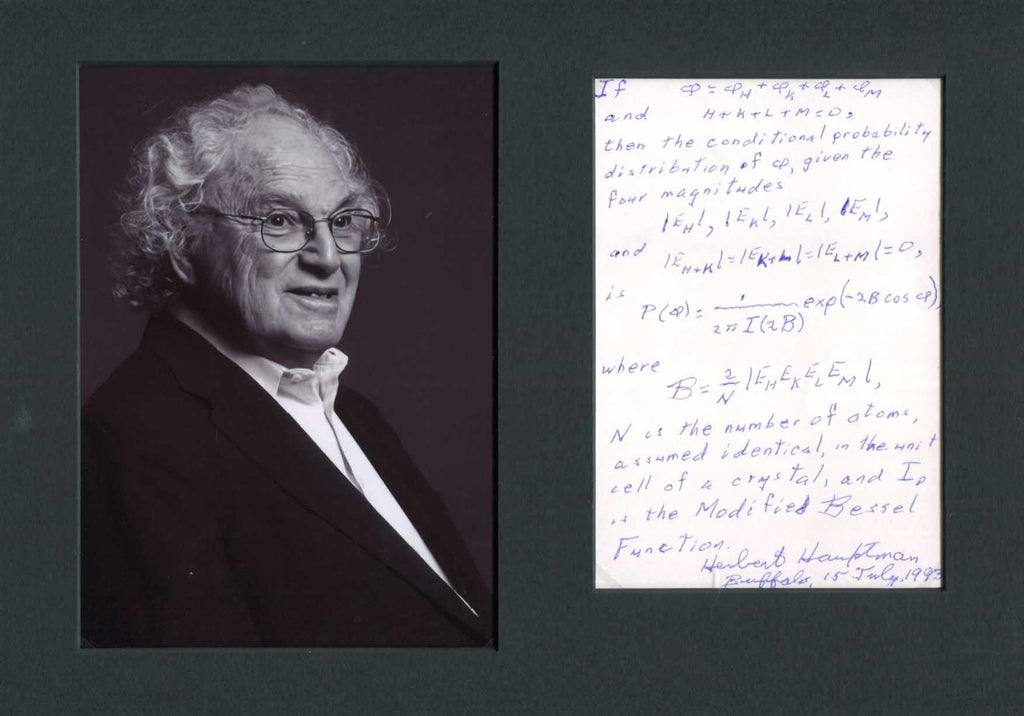 If φ = φ_H + φ_K + φ_L + φ_M
and H + K + L + M = 0,
then the conditional probability
distribution of φ, given the
four magnitudes
|E_H|, |E_K|, |E_L|, |E_M|,
and |E_{H+K}| = |E_{K+L}| = |E_{L+M}| = 0,
is
P(φ) = 1/(2π I(2B)) exp(-2B cos φ),
where
B = 2/N |E_H E_K E_L E_M|,
N is the number of atoms,
assumed identical, in the unit
cell of a crystal, and I_0
is the Modified Bessel
Function.
Herbert Hauptman
Buffalo, 15 July, 1993